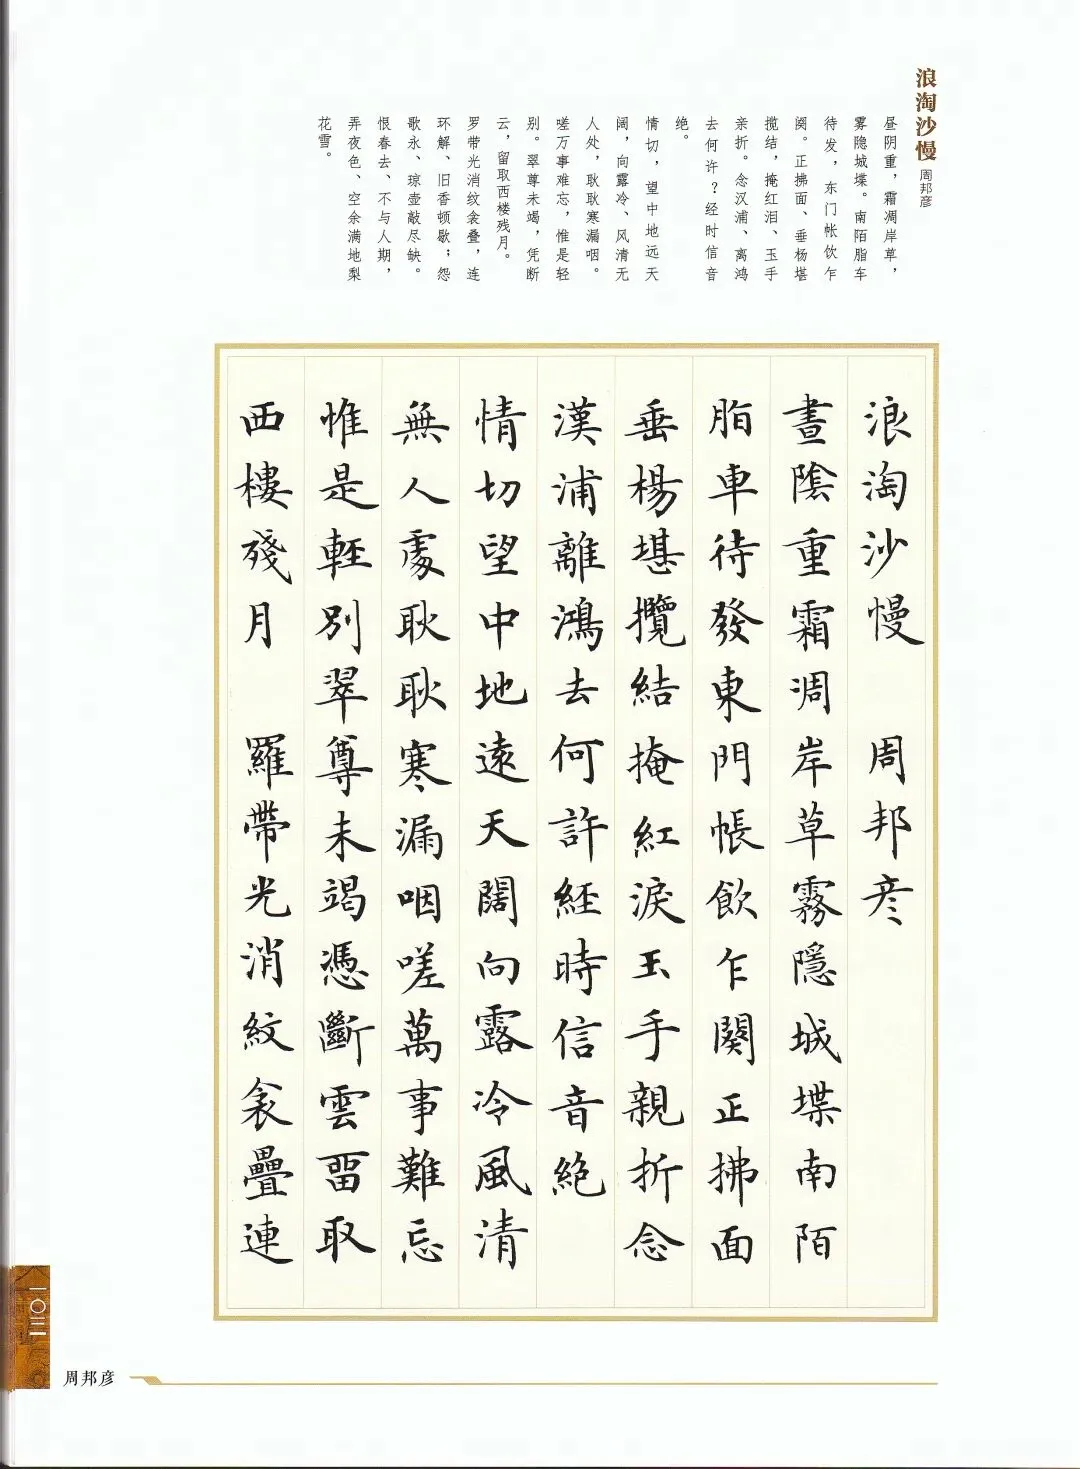 浪淘沙慢 周邦彦
昼阴重，霜凋岸草，
雾隐城堞。南陌脂车
待发，东门帐饮乍
阕。正拂面、垂杨堪
揽结，掩红泪、玉手
亲折。念汉浦、离鸿
去何许？经时信音
绝。
情切，望中地远天
阔，向露冷、风清无
人处，耿耿寒漏咽。
嗟万事难忘，惟是轻
别。翠尊未竭，凭断
云，留取西楼残月。
罗带光消纹衾叠，连
环解、旧香顿歇；怨
歌永、琼壶敲尽缺。
恨春去、不与人期，
弄夜色、空余满地梨
花雪。
浪淘沙慢 周邦彦
晝陰重霜凋岸草霧隱城堞南陌
脂車待發東門帳飲乍闋正拂面
垂楊堪攬結掩紅淚玉手親折念
漢浦離鴻去何許經時信音絕
情切望中地遠天闊向露冷風清
無人處耿耿寒漏咽嗟萬事難忘
惟是輕別翠尊未竭憑斷雲留取
西樓殘月 羅帶光消紋衾疊連
一〇三
周邦彦